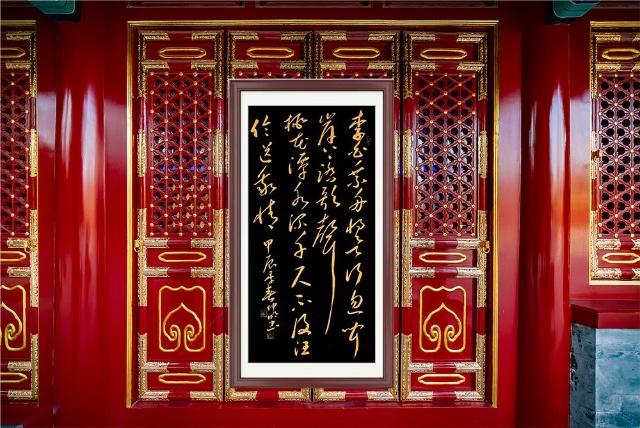 李白乘舟將欲行忽聞
岸上踏歌聲
桃花潭水深千尺不及汪
倫送我情
甲辰年春